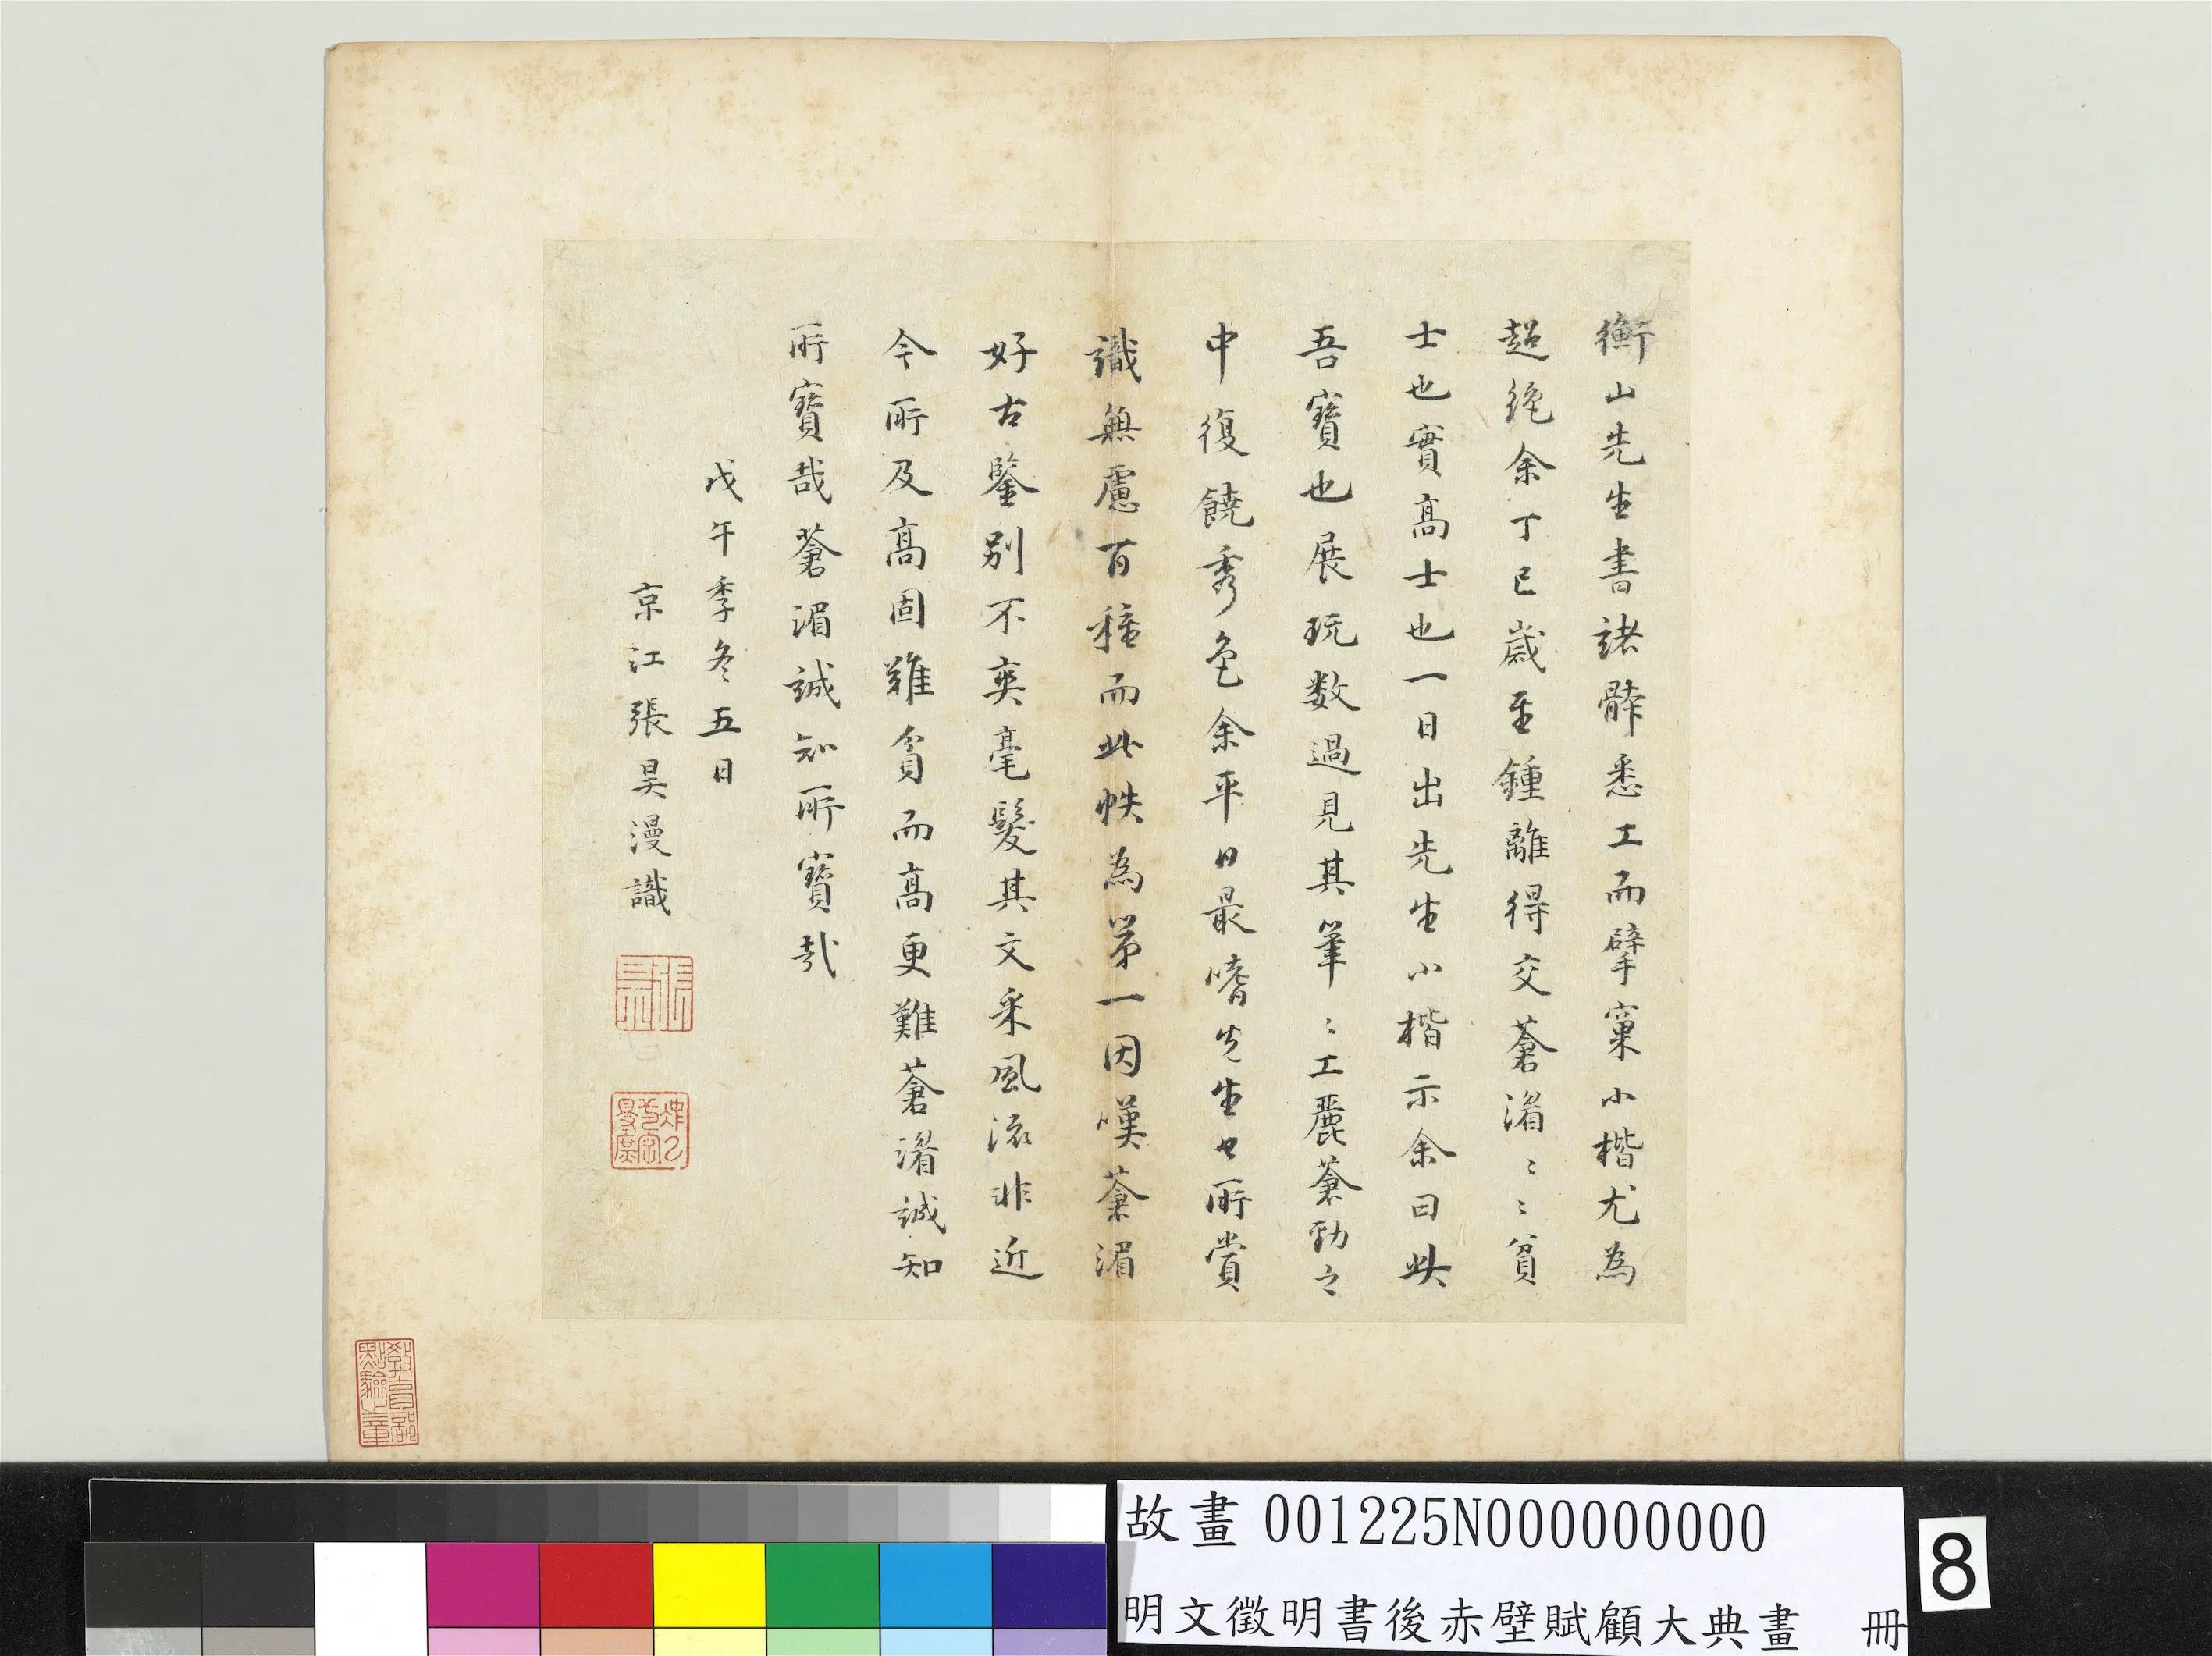 衡山先生書諸體悉工而擘窠小楷尤為
超絶余丁巳歲至鍾離得交蒼湄〻〻貧
士也實高士也一日出先生小楷示余曰此
吾寶也展玩数過見其筆〻工麗蒼勁之
中復饒秀色余平日最嗜先生也所賞
識無慮百種而此帙為第一因嘆蒼湄
好古鑒别不爽毫髮其文采風流非近
今所及高固難貧而高更難蒼湄誠知
所寶哉蒼湄誠知所寶哉
戊午季冬五日
京江張昊漫識
教育部點驗之章
故畫 001225N000000000
明文徵明書後赤壁賦顧大典畫 冊
8